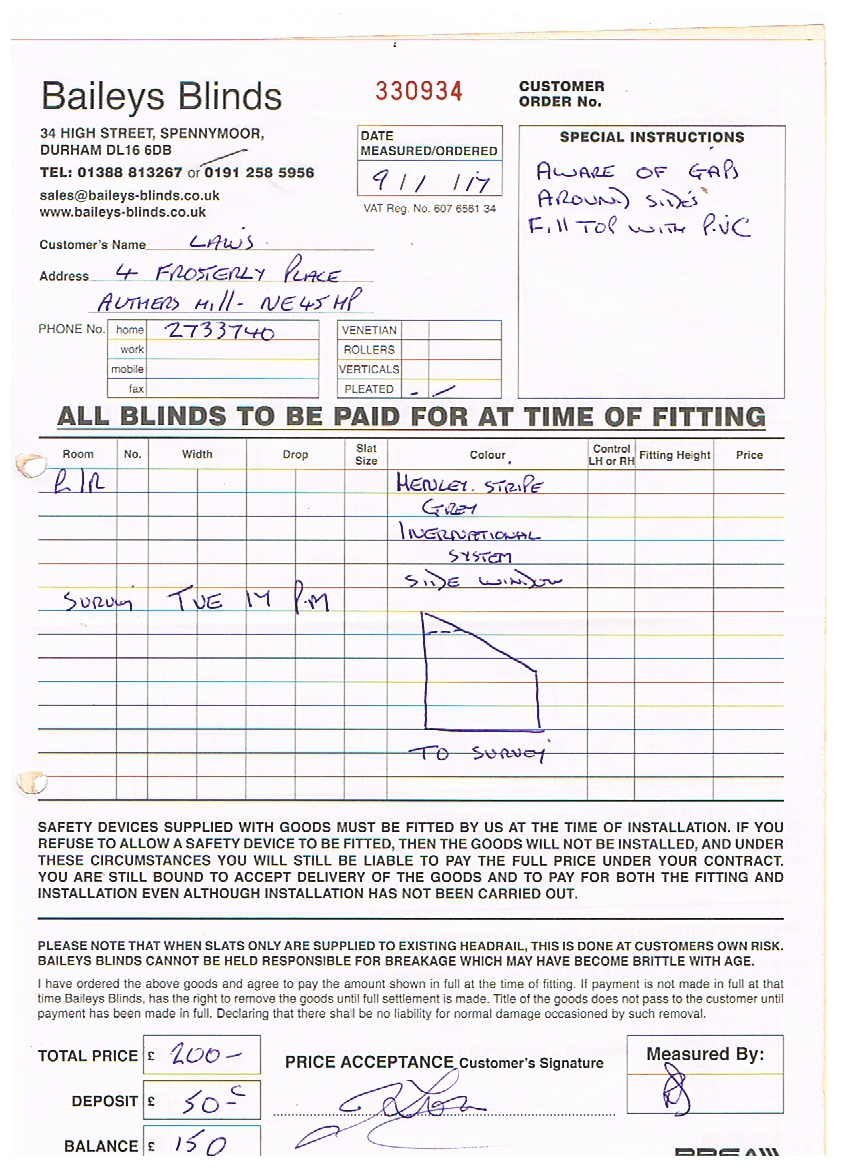 Baileys Blinds
330934
CUSTOMER
ORDER No.
34 HIGH STREET, SPENNYMOOR,
DURHAM DL16 6DB
TEL: 01388 813267 or 0191 258 5956
sales@baileys-blinds.co.uk
www.baileys-blinds.co.uk
DATE
MEASURED/ORDERED
9/1/17
VAT Reg. No. 607 6561 34
SPECIAL INSTRUCTIONS
AWARE OF GAPS
AROUND SIDES
Fill TOP WITH P.VC
Customer's Name LAWS
Address 4 FROSTERLY PLACE
AUTHERS Hill - NE4 5HP
PHONE No. home 2733740
work
mobile
fax
VENETIAN
ROLLERS
VERTICALS
PLEATED
ALL BLINDS TO BE PAID FOR AT TIME OF FITTING
Room No. Width Drop Slat Size Colour Control LH or RH Fitting Height Price
HENLEY. STRIPE
GREY
INTERNATIONAL
SYSTEM
SIDE WINDOW
SURVEY TUE 17 P.M
TO SURVEY
SAFETY DEVICES SUPPLIED WITH GOODS MUST BE FITTED BY US AT THE TIME OF INSTALLATION. IF YOU
REFUSE TO ALLOW A SAFETY DEVICE TO BE FITTED, THEN THE GOODS WILL NOT BE INSTALLED, AND UNDER
THESE CIRCUMSTANCES YOU WILL STILL BE LIABLE TO PAY THE FULL PRICE UNDER YOUR CONTRACT.
YOU ARE STILL BOUND TO ACCEPT DELIVERY OF THE GOODS AND TO PAY FOR BOTH THE FITTING AND
INSTALLATION EVEN ALTHOUGH INSTALLATION HAS NOT BEEN CARRIED OUT.
PLEASE NOTE THAT WHEN SLATS ONLY ARE SUPPLIED TO EXISTING HEADRAIL, THIS IS DONE AT CUSTOMERS OWN RISK.
BAILEYS BLINDS CANNOT BE HELD RESPONSIBLE FOR BREAKAGE WHICH MAY HAVE BECOME BRITTLE WITH AGE.
I have ordered the above goods and agree to pay the amount shown in full at the time of fitting. If payment is not made in full at that
time Baileys Blinds, has the right to remove the goods until full settlement is made. Title of the goods does not pass to the customer until
payment has been made in full. Declaring that there shall be no liability for normal damage occasioned by such removal.
TOTAL PRICE £ 200-
PRICE ACCEPTANCE Customer's Signature
Measured By:
DEPOSIT £ 50
BALANCE £ 150